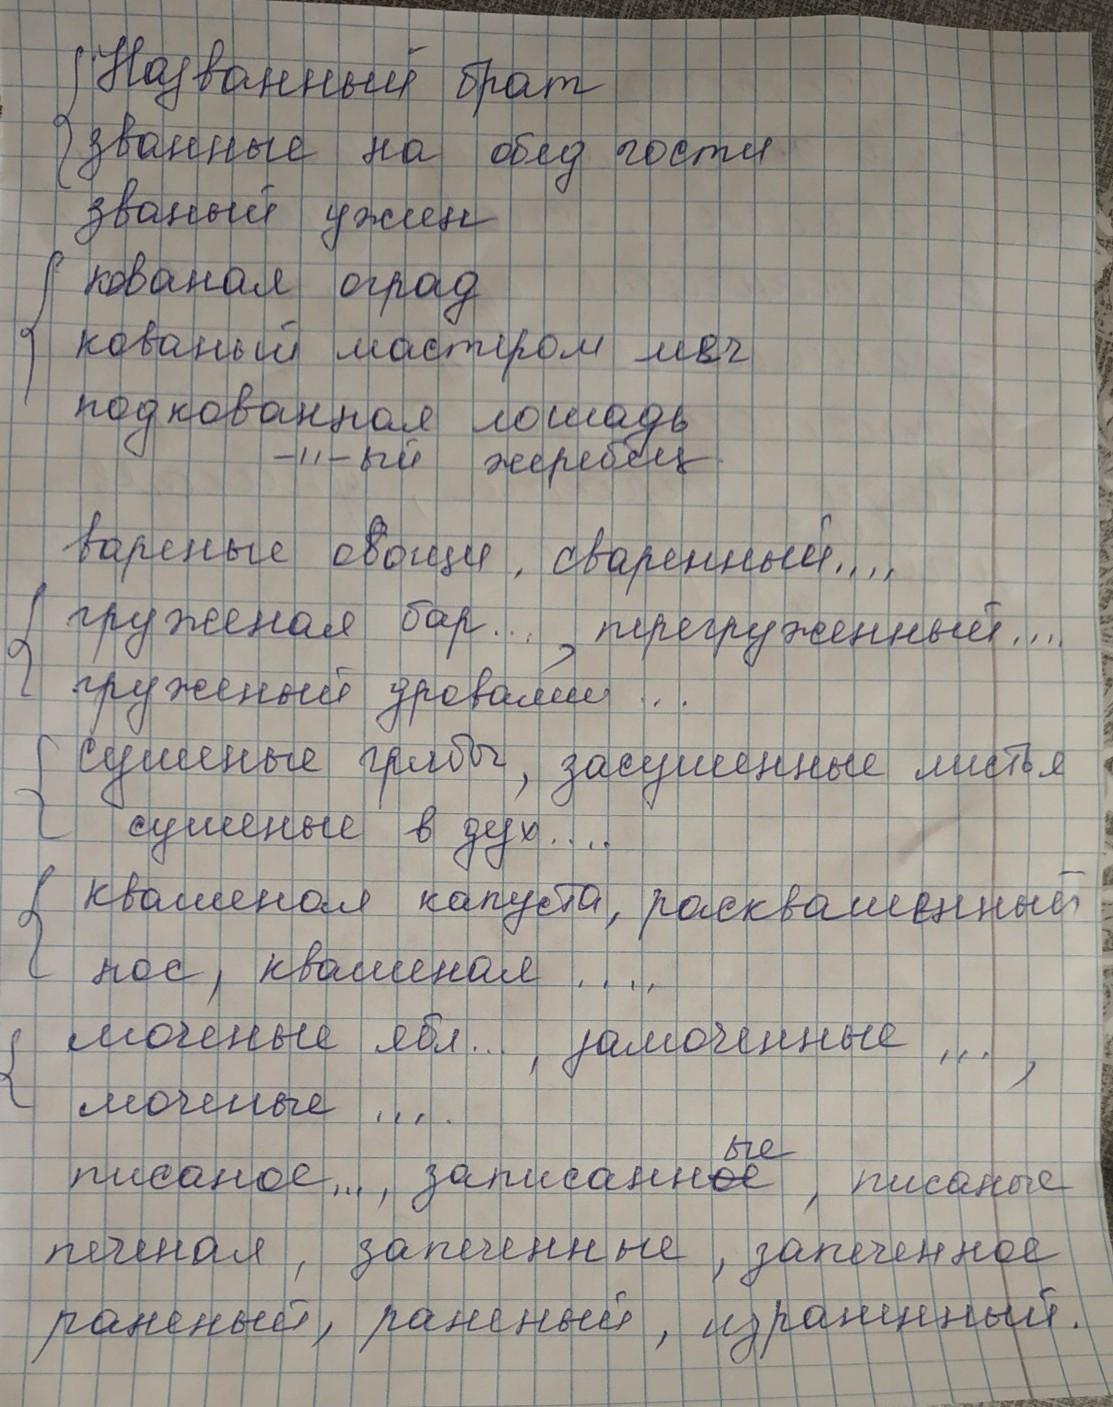 Названный брат
званные на обед гости
званый ужин
кованая оград
кованый мастером меч
подкованная лошадь
-"-ый жеребец
вареные овощи, сваренный....
груженая бар..., перегруженный....
груженый дровами ...
сушеные грибы, засушенные листья
сушеные в дух....
квашеная капуста, расквашенный
нос, квашеная .....
моченые ябл..., замоченные ...,
моченые ....
писаное..., записанные, писаные
печеная, запеченные, запеченное
раненый, раненый, израненный.